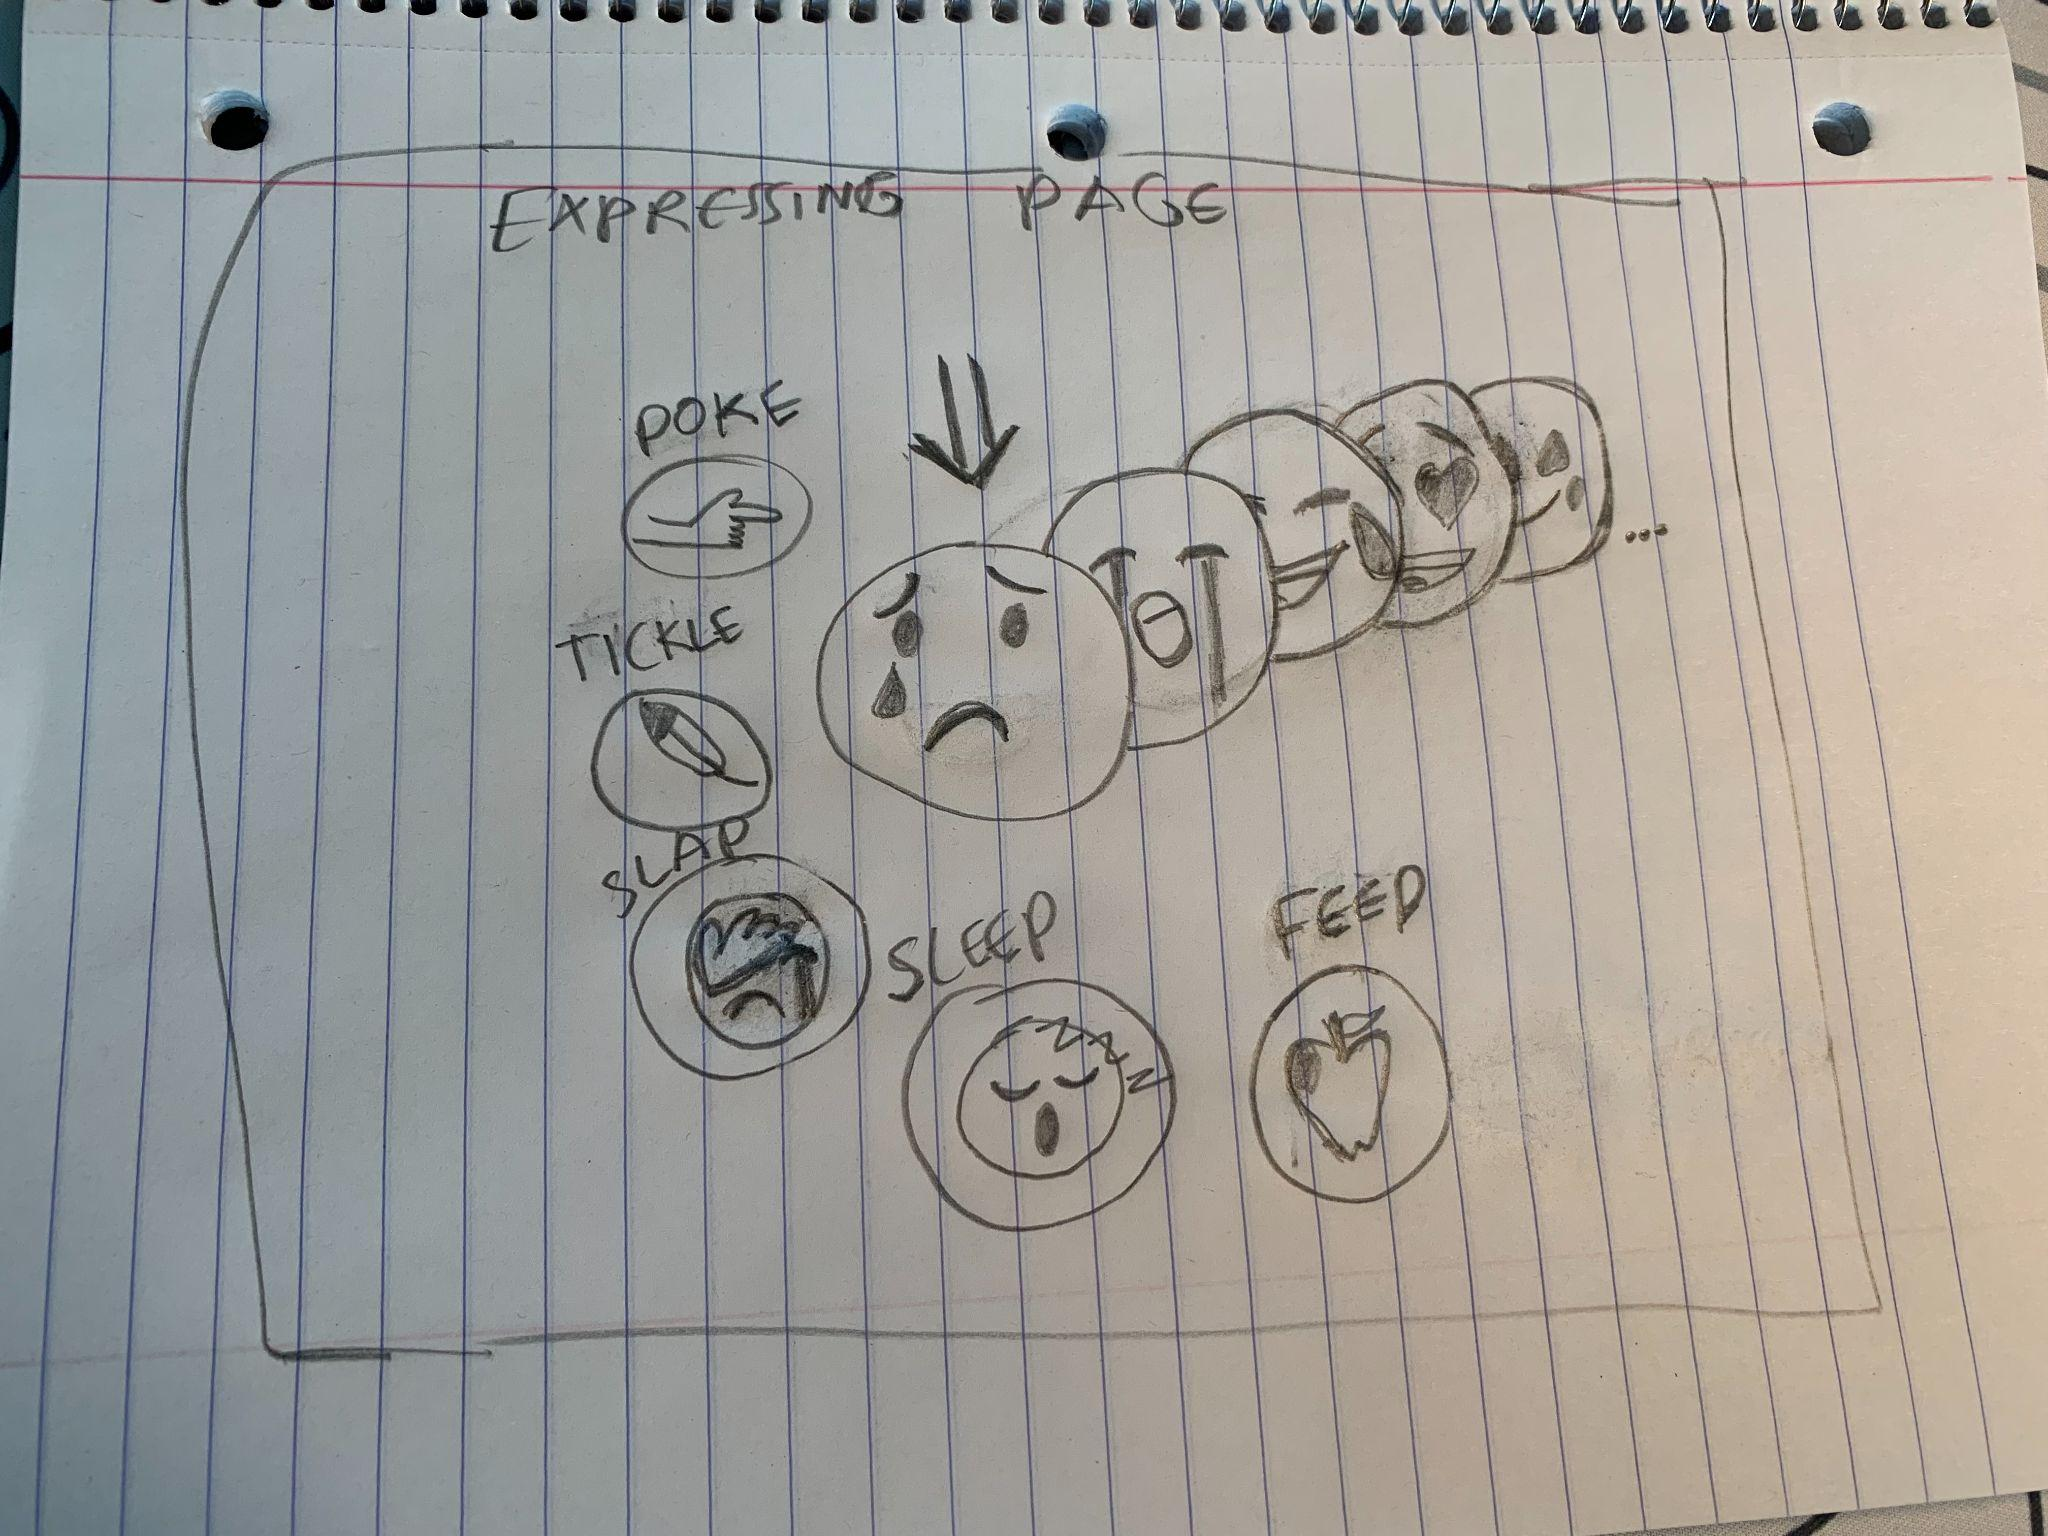 EXPRESSING PAGE
POKE
TICKLE
SLAP
SLEEP
ZZZ
FEED
...